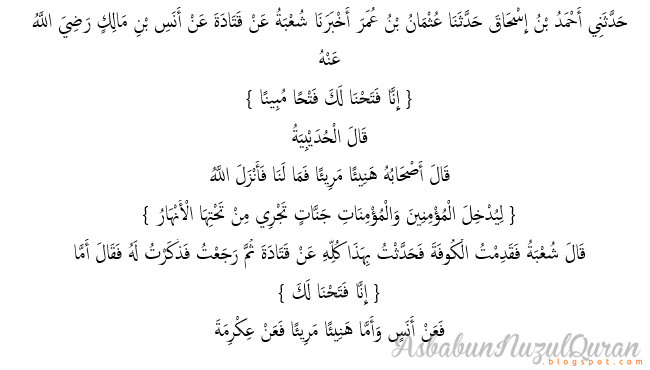 حَدَّثَنِي أَحْمَدُ بْنُ إِسْحَاقَ حَدَّثَنَا عُثْمَانُ بْنُ عُمَرَ أَخْبَرَنَا شُعْبَةُ عَنْ قَتَادَةَ عَنْ أَنَسِ بْنِ مَالِكٍ رَضِيَ اللَّهُ
عَنْهُ
{ إِنَّا فَتَحْنَا لَكَ فَتْحًا مُبِينًا }
قَالَ الْحُدَيْبِيَةُ
قَالَ أَصْحَابُهُ هَنِيئًا مَرِيئًا فَمَا لَنَا فَأَنْزَلَ اللَّهُ
{ لِيُدْخِلَ الْمُؤْمِنِينَ وَالْمُؤْمِنَاتِ جَنَّاتٍ تَجْرِي مِنْ تَحْتِهَا الْأَنْهَارُ }
قَالَ شُعْبَةُ فَقَدِمْتُ الْكُوفَةَ فَحَدَّثْتُ بِهَذَا كُلِّهِ عَنْ قَتَادَةَ ثُمَّ رَجَعْتُ فَذَكَرْتُ لَهُ فَقَالَ أَمَّا
{ إِنَّا فَتَحْنَا لَكَ }
فَعَنْ أَنَسٍ وَأَمَّا هَنِيئًا مَرِيئًا فَعَنْ عِكْرِمَةَ
AsbabunNuzulQuran
.blogspot.com